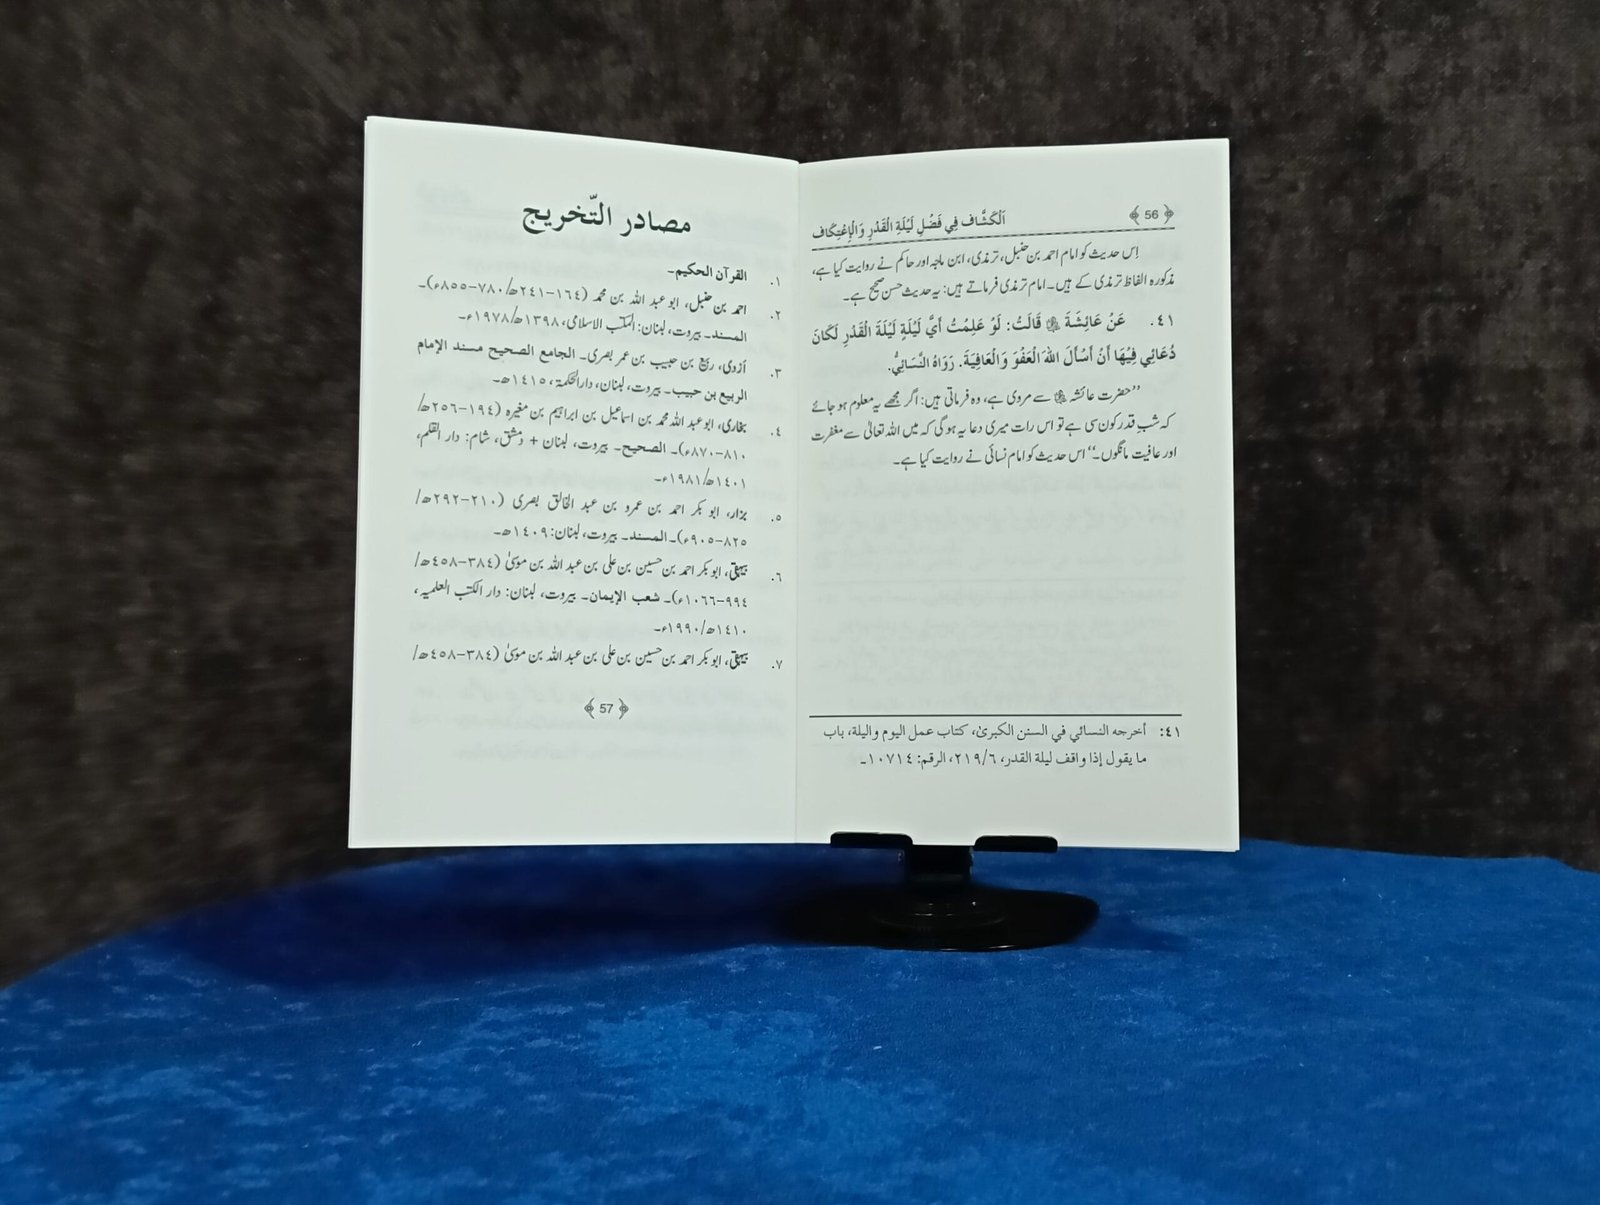 ﴿56﴾ اَلْكَشَّاف فِي فَضْلِ لَيْلَةِ الْقَدْرِ وَالْاِعْتِكَاف
اِس حدیث کو امام احمد بن حنبل، ترمذی، ابن ماجہ اور حاکم نے روایت کیا ہے،
مذکورہ الفاظ ترمذی کے ہیں۔ امام ترمذی فرماتے ہیں: یہ حدیث حسن صحیح ہے۔
٤١. عَنْ عَائِشَةَ ﷺ قَالَتْ: لَوْ عَلِمْتُ أَيَّ لَيْلَةٍ لَيْلَةَ الْقَدْرِ لَكَانَ
دُعَائِي فِيْهَا أَنْ أَسْأَلَ اللهَ الْعَفْوَ وَالْعَافِيَةَ. رَوَاهُ النَّسَائِيُّ.
’’حضرت عائشہ سے مروی ہے، وہ فرماتی ہیں: اگر مجھے یہ معلوم ہو جائے
کہ شبِ قدر کون سی ہے تو اس رات میری دعا یہ ہوگی کہ میں اللہ تعالیٰ سے مغفرت
اور عافیت مانگوں۔‘‘ اس حدیث کو امام نسائی نے روایت کیا ہے۔
٤١: أخرجه النسائي في السنن الكبرىٰ، كتاب عمل اليوم والليلة، باب
ما يقول إذا وافق ليلة القدر، ٢١٩/٦، الرقم: ١٠٧١٤۔
مصادر التّخريج
١. القرآن الحكيم۔
٢. احمد بن حنبل، ابو عبد اللہ بن محمد (١٦٤-٢٤١ھ/٧٨٠-٨٥٥ء)۔
المسند۔ بیروت، لبنان: المکتب الاسلامی، ١٣٩٨ھ/١٩٧٨ء۔
٣. ازدی، ربیع بن حبیب بن عمر بصری۔ الجامع الصحيح مسند الإمام
الربيع بن حبيب۔ بیروت، لبنان، دارالحکمۃ، ١٤١٥ھ۔
٤. بخاری، ابو عبد اللہ محمد بن اسماعیل بن ابراہیم بن مغیرہ (١٩٤-٢٥٦ھ/
٨١٠-٨٧٠ء)۔ الصحيح۔ بیروت، لبنان + دمشق، شام: دار القلم،
١٤٠١ھ/١٩٨١ء۔
٥. بزار، ابو بکر احمد بن عمرو بن عبد الخالق بصری (٢١٠-٢٩٢ھ/
٨٢٥-٩٠٥ء)۔ المسند۔ بیروت، لبنان: ١٤٠٩ھ۔
٦. بیہقی، ابو بکر احمد بن حسین بن علی بن عبد اللہ بن موسیٰ (٣٨٤-٤٥٨ھ/
٩٩٤-١٠٦٦ء)۔ شعب الإيمان۔ بیروت، لبنان: دار الکتب العلمیہ،
١٤١٠ھ/١٩٩٠ء۔
٧. بیہقی، ابو بکر احمد بن حسین بن علی بن عبد اللہ بن موسیٰ (٣٨٤-٤٥٨ھ/
﴿57﴾